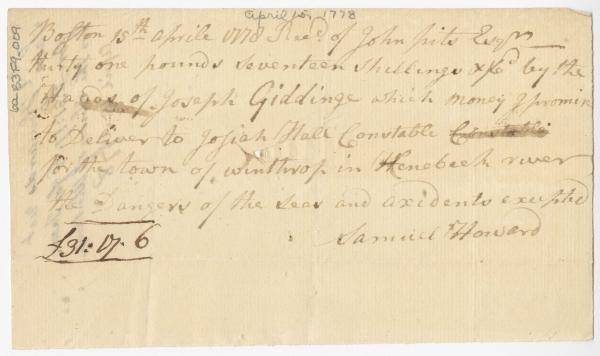 april 15, 1778
Boston 15th aprile 1778 Recd of John Pits Esqr
thirty one pounds seventeen shillings & 6d by the
Hands of Joseph Giddinge which money I promise
to Deliver to Josiah Hall Constable Constable
for the town of winthrop in Kenebeck river
the Dangers of the seas and axidents excepted
Samuel Howard
£31:17:6